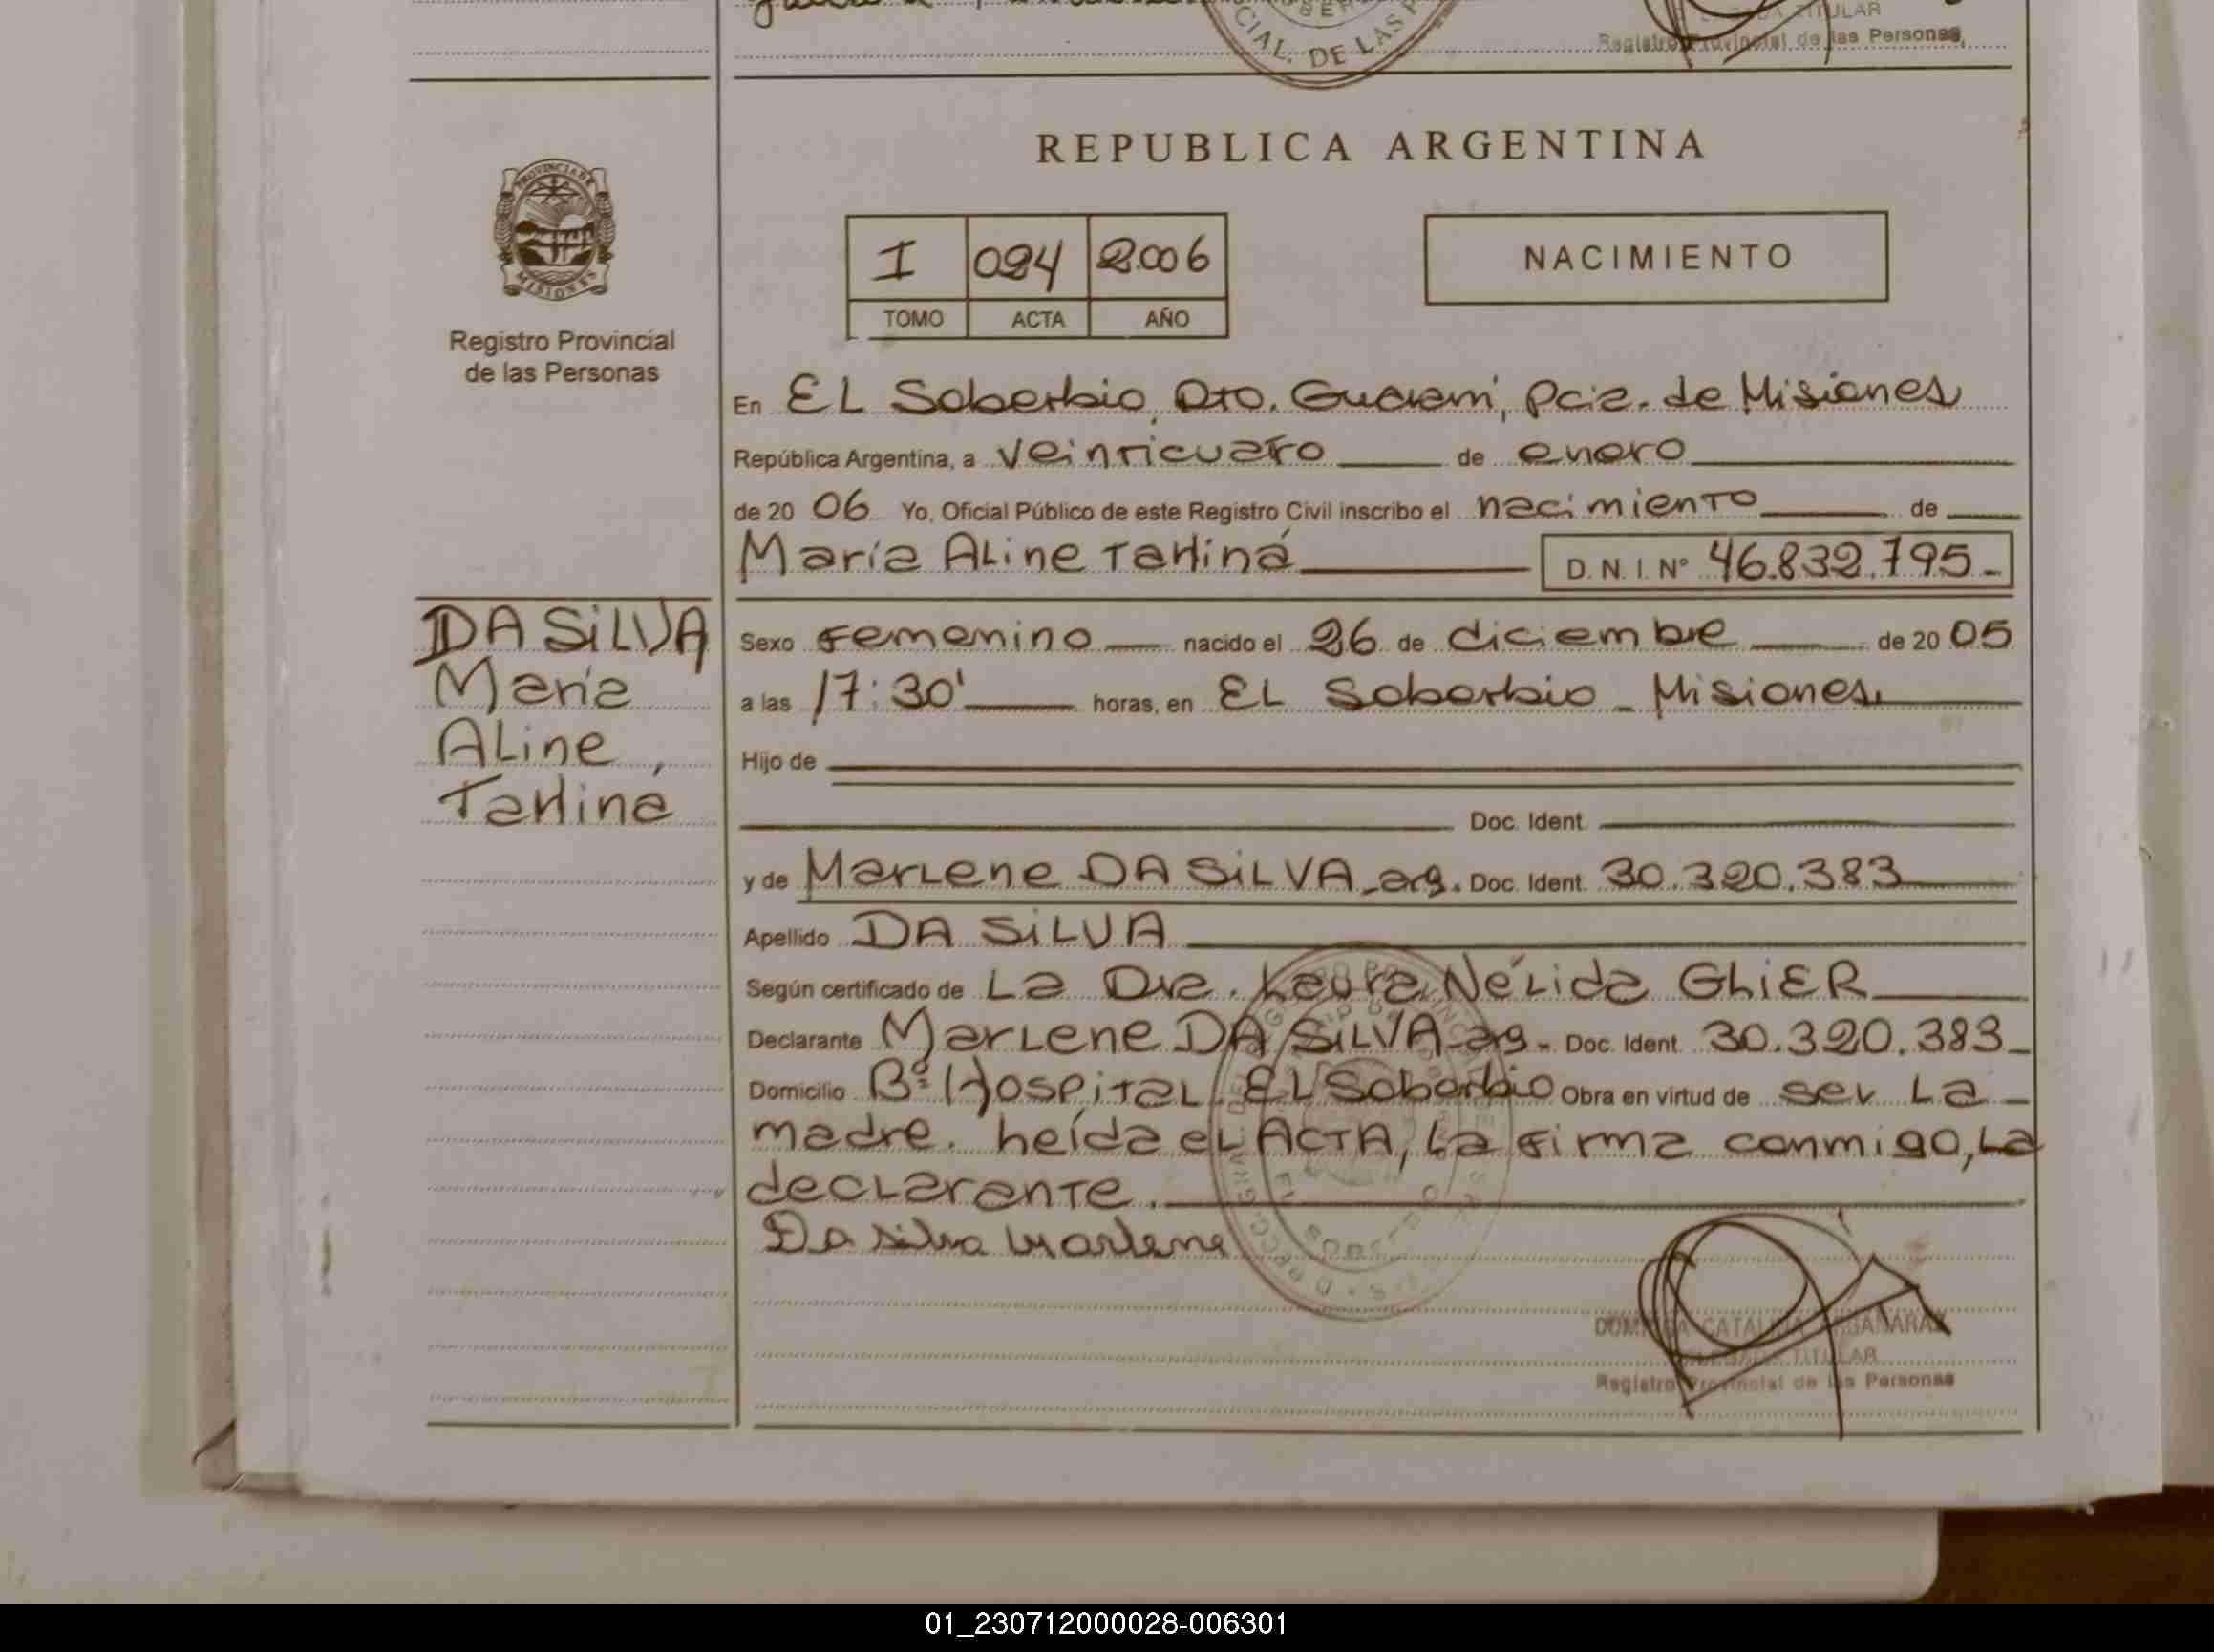 CIAL. DE LAS
TITULAR
Registro Provincial de las Personas
REPUBLICA ARGENTINA
PROVINCIA DE
MISIONES
Registro Provincial
de las Personas
I 024 2006
TOMO ACTA AÑO
NACIMIENTO
En EL Soberbio, Dto. Guaraní, Pcia. de Misiones
República Argentina, a veinticuatro de enero
de 20 06 Yo, Oficial Público de este Registro Civil inscribo el nacimiento de
María ALine Tahiná D. N. I. Nº 46.832.795-
DA SiLVA
María
ALine
Tahiná
Sexo Femenino nacido el 26 de diciembre de 20 05
a las 17:30' horas, en EL Soberbio - Misiones.
Hijo de
Doc. Ident.
y de MarLene DA SiLVA-arg. Doc. Ident. 30.320.383
Apellido DA SiLVA
Según certificado de La Dra. Laura NéLida GLiER
Declarante MarLene DA SiLVA-arg- Doc. Ident. 30.320.383-
Domicilio Bº HospitaL EL Soberbio Obra en virtud de ser La
madre. Leída eL ACTA, La firma conmigo, La
decLarante.
Da silva Marlene
CATALINA
TITULAR
Registro Provincial de las Personas
01_230712000028-006301